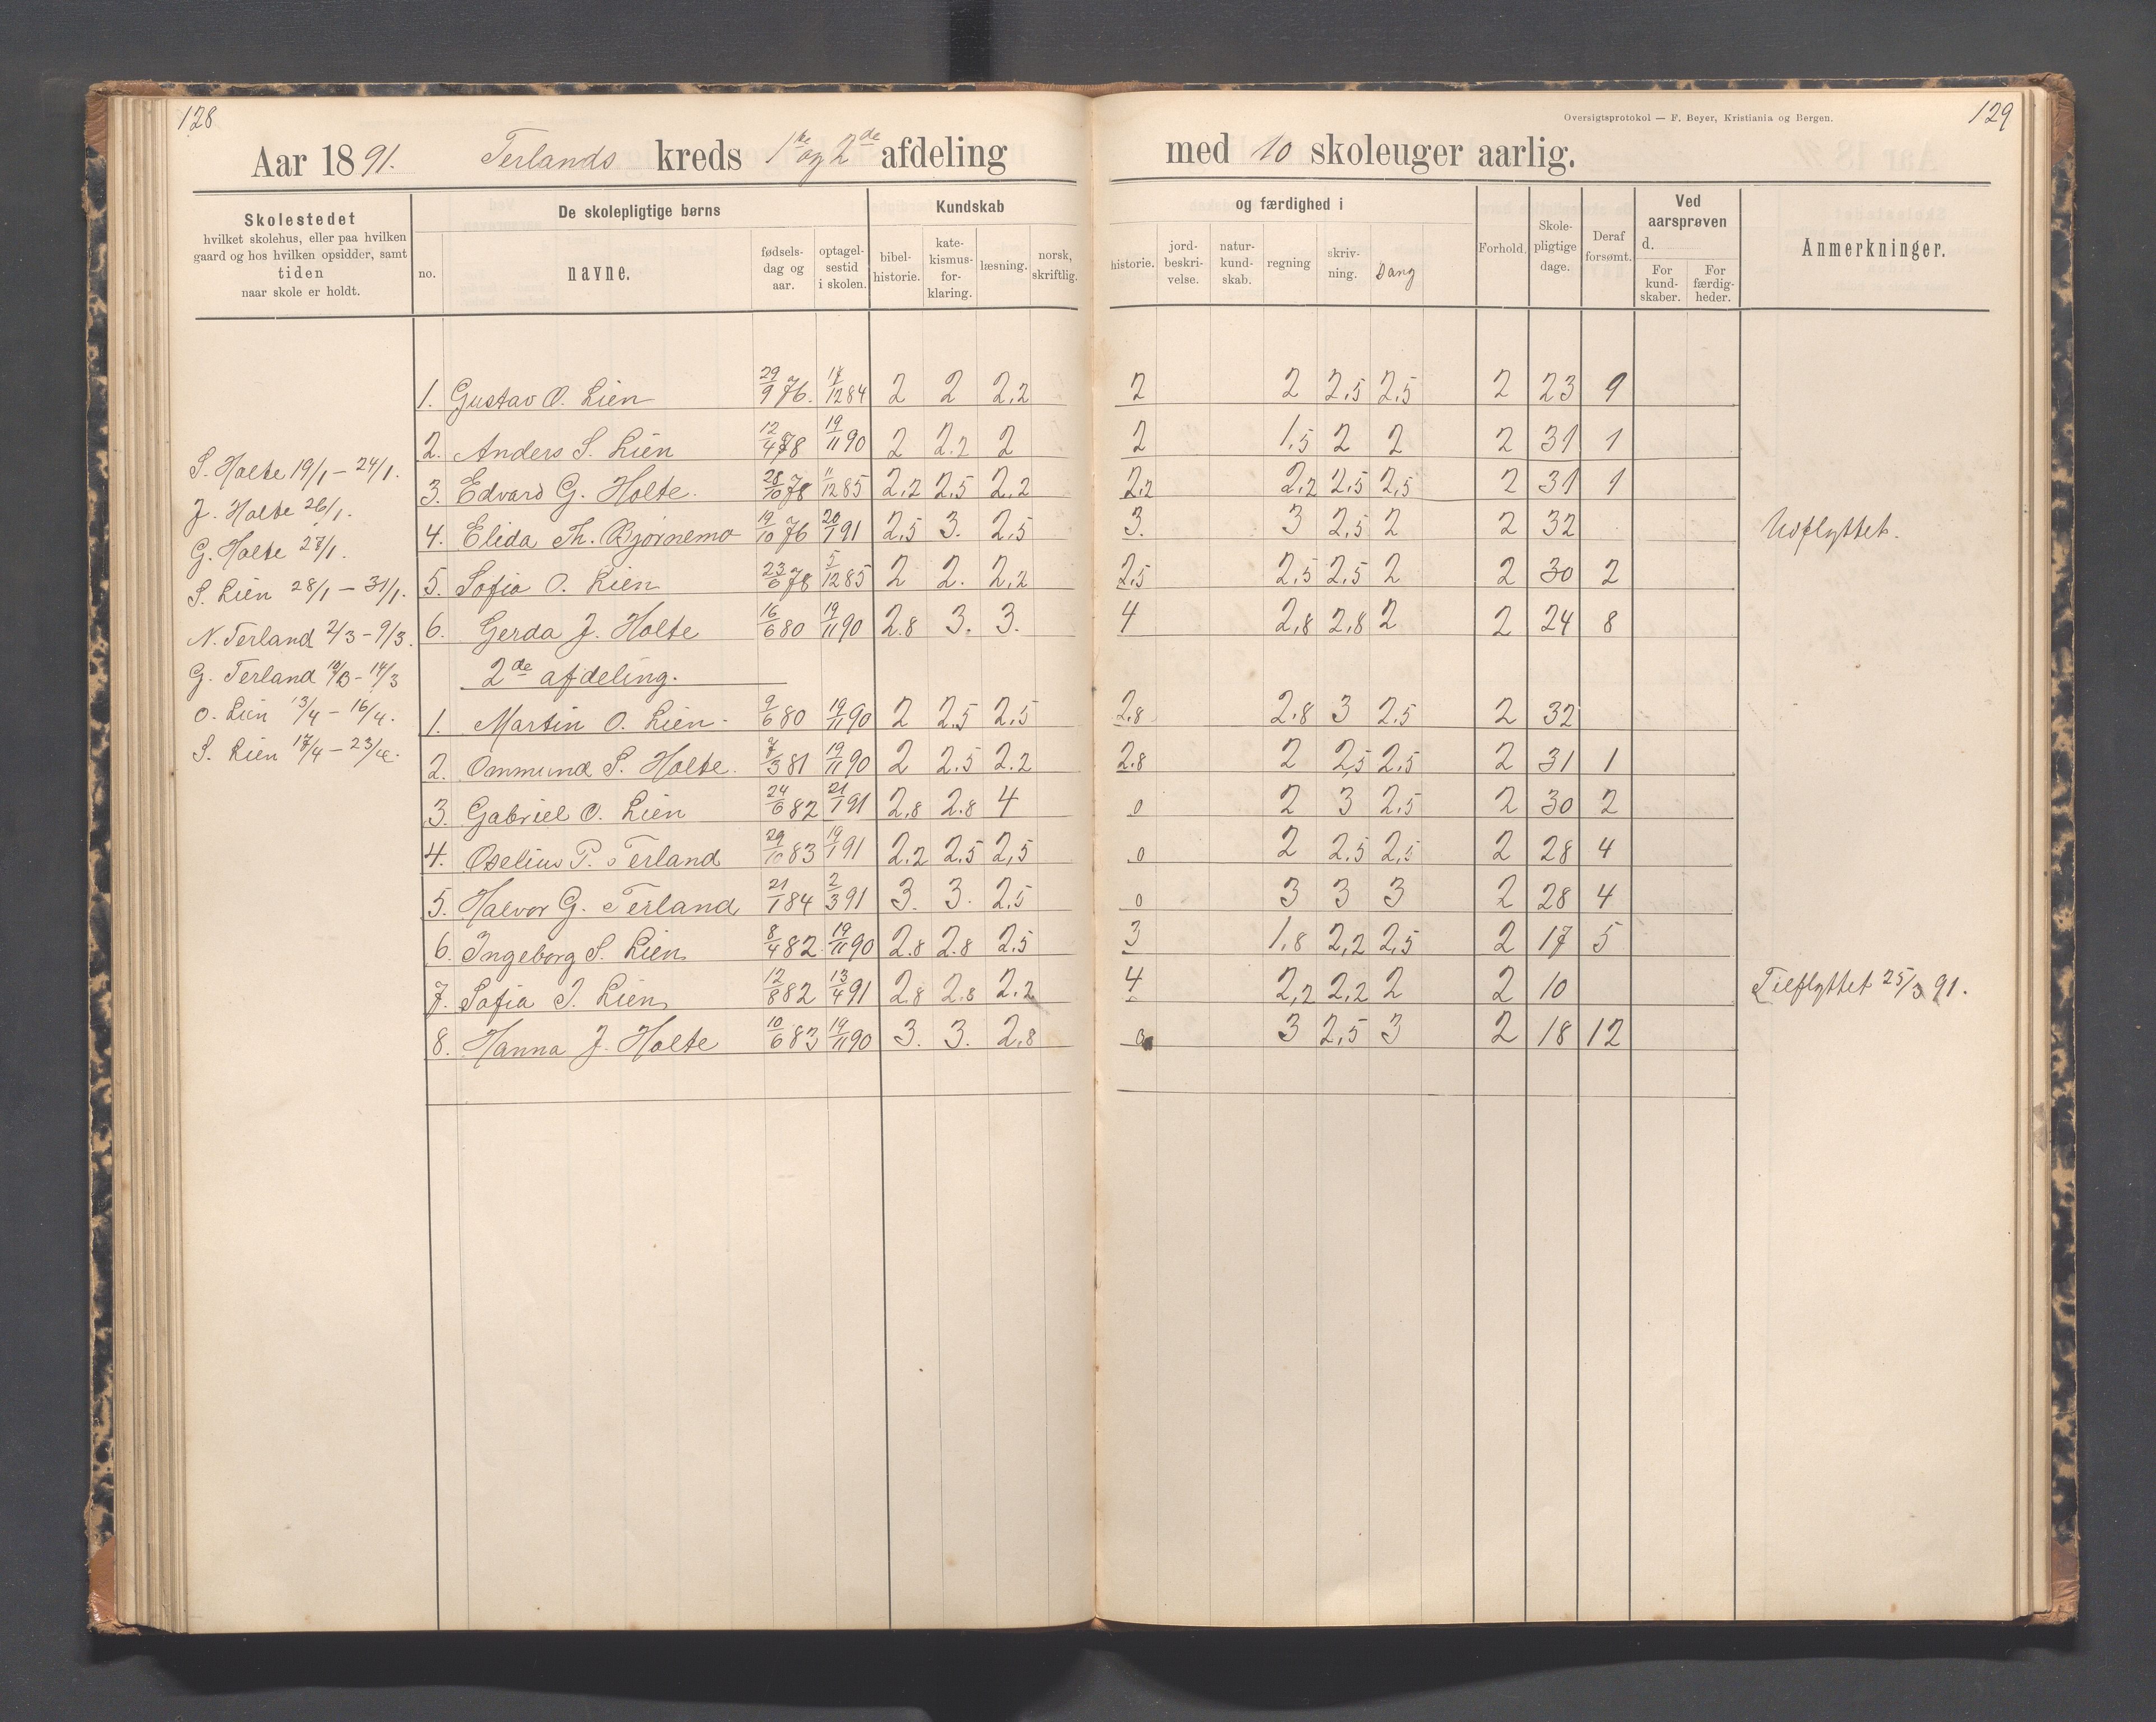 128
Aar 1891. Terlands kreds 1ste og 2de afdeling
Skolestedet
hvilket skolehus, eller paa hvilken
gaard og hos hvilken opsidder, samt
tiden
naar skole er holdt.
De skolepligtige børns
no.
navne.
fødsels-
dag og
aar.
optagel-
sestid
i skolen.
Kundskab
bibel-
historie.
kate-
kismus-
for-
klaring.
læsning.
norsk,
skriftlig.
S. Holte 19/1 – 24/1.
J. Holte 26/1.
G. Holte 27/1.
S. Lien 28/1 – 31/1.
N. Terland 2/3 – 9/3.
G. Terland 10/3 – 14/3
O. Lien 13/4 – 16/4.
S. Lien 17/4 – 23/4.
1. Gustav O. Lien 29/9 76. 17/12 84 2 2 2,2
2. Anders S. Lien 12/4 78 19/11 90 2 2.2 2
3. Edvard G. Holte. 28/10 78 11/12 85 2,2 2,5 2,2
4. Elida Th. Bjørnemo 19/10 76 20/1 91 2,5 3. 2,5
5. Sofia O. Lien 23/6 78 5/12 85 2 2. 2,2
6. Gerda J. Holte 16/6 80 19/11 90 2.8 3. 3.
2de afdeling.
1. Martin O. Lien 9/6 80 19/11 90 2 2.5 2,5
2. Ommund S. Holte. 7/3 81 19/11 90 2 2.5 2.2
3. Gabriel O. Lien 24/6 82 21/1 91 2,8 2.8 4
4. Oselius P. Terland 29/10 83 19/1 91 2.2 2.5 2,5
5. Halvor G. Terland 21/1 84 2/3 91 3. 3. 2,5
6. Ingeborg S. Lien 8/4 82. 19/11 90 2.8 2.8 2.5
7. Sofia T. Lien 12/8 82 13/4 91 2.8 2.8 2.2
8. Hanna J. Holte 10/6 83 19/11 90 3. 3. 2,8
Oversigtsprotokol — F. Beyer, Kristiania og Bergen.
129
med 10 skoleuger aarlig.
og færdighed i
historie.
jord-
beskri-
velse.
natur-
kund-
skab.
regning
skriv-
ning.
Sang
Forhold.
Skole-
pligtige
dage.
Deraf
forsømt.
Ved
aarsprøven
d.
For
kund-
skaber.
For
færdig-
heder.
Anmerkninger.
2 2 2,5 2,5 2 23 9
2 1,5 2 2 2 31 1
2,2 2,2 2,5 2,5 2 31 1
3. 3 2,5 2 2 32 Udflyttet.
2,5 2,5 2,5 2 2 30 2
4 2,8 2,8 2 2 24 8
2,8 2.8 3 2,5 2 32
2.8 2 2,5 2,5 2 31 1
0 2 3 2,5 2 30 2
0 2 2,5 2,5 2 28 4
0 3 3 3 2 28 4
3 1,8 2,2 2,5 2 17 5
4 2,2 2,2 2 2 10 Tilflyttet 25/3 91.
0 3 2,5 3 2 18 12